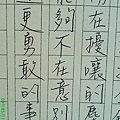 在擾嚷的
夠不在意別
更勇敢的事